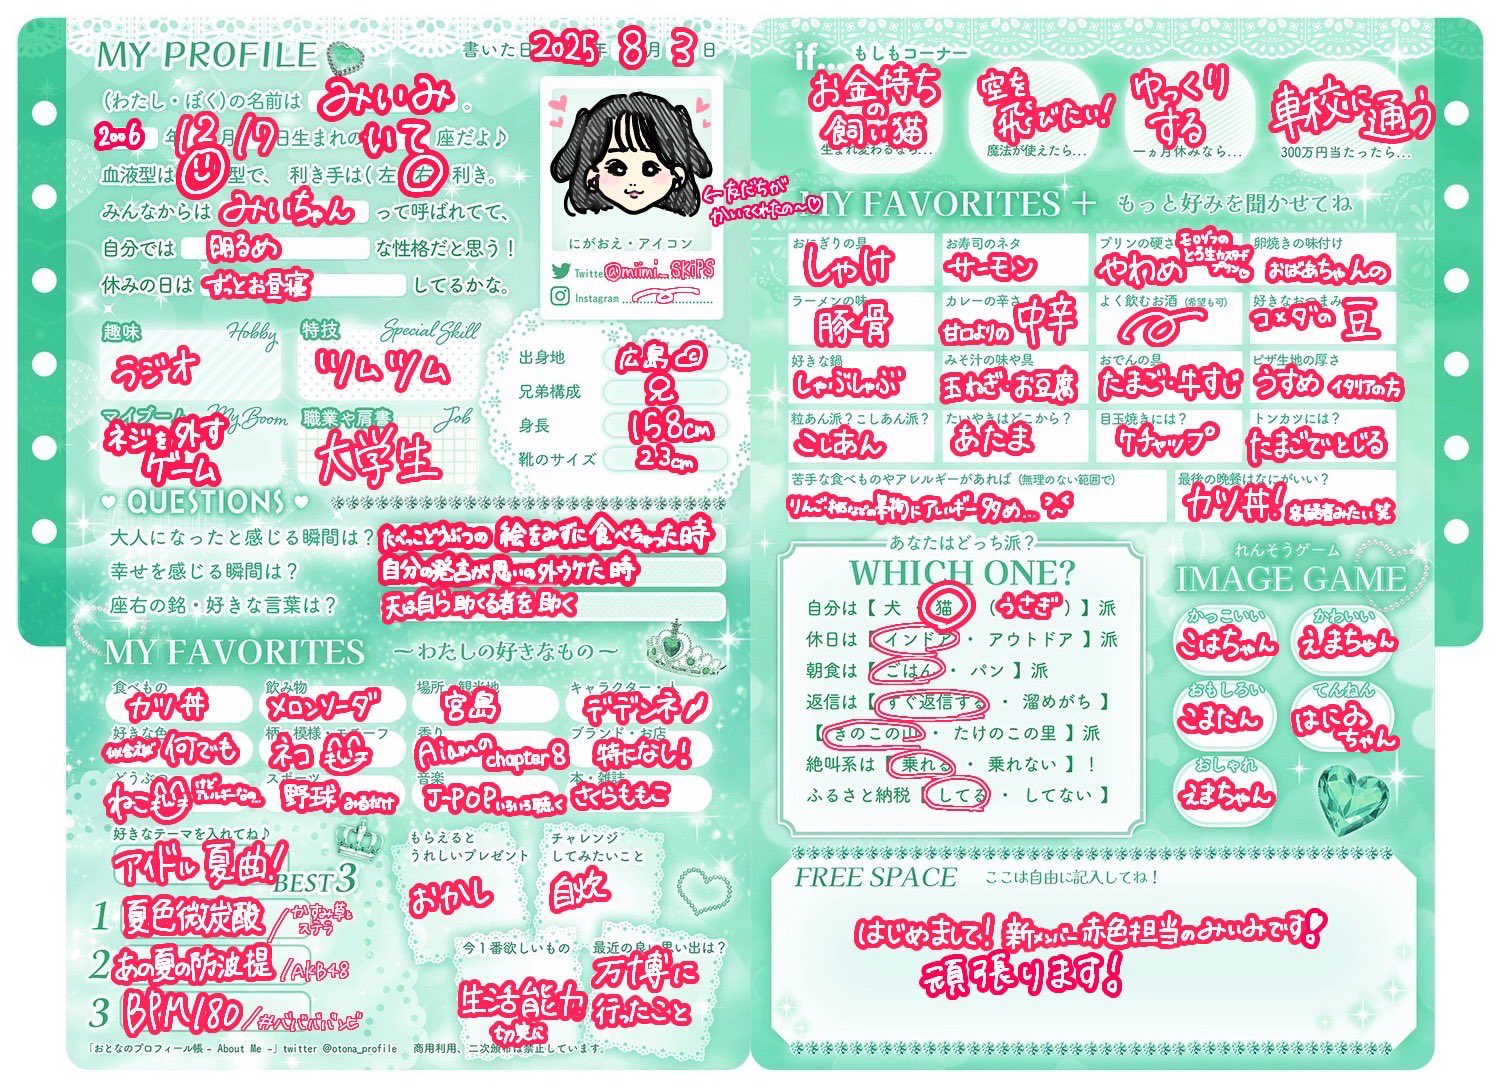 MY PROFILE
書いた日 2025年 8月 3日
(わたし・ぼく)の名前は みいみ 。
2006年 12月 17日生まれの いて 座だよ♪
血液型は 型で、 利き手は(左・右)利き。
みんなからは みいちゃん って呼ばれてて、
自分では 明るめ な性格だと思う!
休みの日は ずっとお昼寝 してるかな。
にがおえ・アイコン
←友だちが
かいてくれたの〜♡
Twitter @miimi_SKiPS
Instagram
趣味 Hobby
ラジオ
特技 Special Skill
ツムツム
マイブーム My Boom
ネジを外す
ゲーム
職業や肩書 Job
大学生
出身地 広島
兄弟構成 兄
身長 158cm
靴のサイズ 23cm
♥ QUESTIONS ♥
大人になったと感じる瞬間は? たべっこどうぶつの 絵をみずに食べちゃった時
幸せを感じる瞬間は? 自分の発言が思いの外ウケた時
座右の銘・好きな言葉は? 天は自ら助くる者を助く
MY FAVORITES 〜わたしの好きなもの〜
食べもの カツ丼
飲み物 メロンソーダ
場所・観光地 宮島
キャラクター・人 デデンネ
好きな色 何でも
柄・模様・モチーフ ネコ
香り Aiamのchapter8
ブランド・お店 特になし!
どうぶつ ねこ けどアレルギーなの…
スポーツ 野球 みるだけ
音楽 J-POP いろいろ聴く
本・雑誌 さくらももこ
好きなテーマを入れてね♪
アイドル 夏曲!
BEST3
1 夏色微炭酸 /かすみ草とステラ
2 あの夏の防波堤 /AKB48
3 BPM180 /#ババババンビ
もらえると
うれしいプレゼント
おかし
チャレンジ
してみたいこと
自炊
今1番欲しいもの
生活能力
切実に
最近の良い思い出は?
万博に
行ったこと
「おとなのプロフィール帳 - About Me -」twitter @otona_profile 商用利用、二次頒布は禁止しています。
if... もしもコーナー
お金持ち
の
飼い猫
生まれ変わるなら…
空を
飛びたい!
魔法が使えたら…
ゆっくり
する
一ヵ月休みなら…
車校に
通う
300万円当たったら…
MY FAVORITES + もっと好みを聞かせてね
おにぎりの具 しゃけ
お寿司のネタ サーモン
プリンの硬さ やわめ モロゾフのとろ生カスタードプリン
卵焼きの味付け おばあちゃんの
ラーメンの味 豚骨
カレーの辛さ 甘口よりの 中辛
よく飲むお酒 (希望も可)
好きなおつまみ コメダの 豆
好きな鍋 しゃぶしゃぶ
みそ汁の味や具 玉ねぎ・お豆腐
おでんの具 たまご・牛すじ
ピザ生地の厚さ うすめ イタリアの方
粒あん派?こしあん派? こしあん
たいやきはどこから? あたま
目玉焼きには? ケチャップ
トンカツには? たまごでとじる
苦手な食べものやアレルギーがあれば (無理のない範囲で)
りんご・桃などの果物にアレルギー多め…
最後の晩餐はなにがいい?
カツ丼! 容疑者みたい笑
あなたはどっち派?
WHICH ONE?
自分は【 犬 ・ 猫 ・ (うさぎ) 】派
休日は【 インドア ・ アウトドア 】派
朝食は【 ごはん ・ パン 】派
返信は【 すぐ返信する ・ 溜めがち 】
【 きのこの山 ・ たけのこの里 】派
絶叫系は【 乗れる ・ 乗れない 】!
ふるさと納税【 してる ・ してない 】
れんそうゲーム
IMAGE GAME
かっこいい こはちゃん
かわいい えまちゃん
おもしろい こまたん
てんねん はにゐちゃん
おしゃれ えまちゃん
FREE SPACE ここは自由に記入してね!
はじめまして!新メンバー赤色担当のみいみです!
頑張ります!